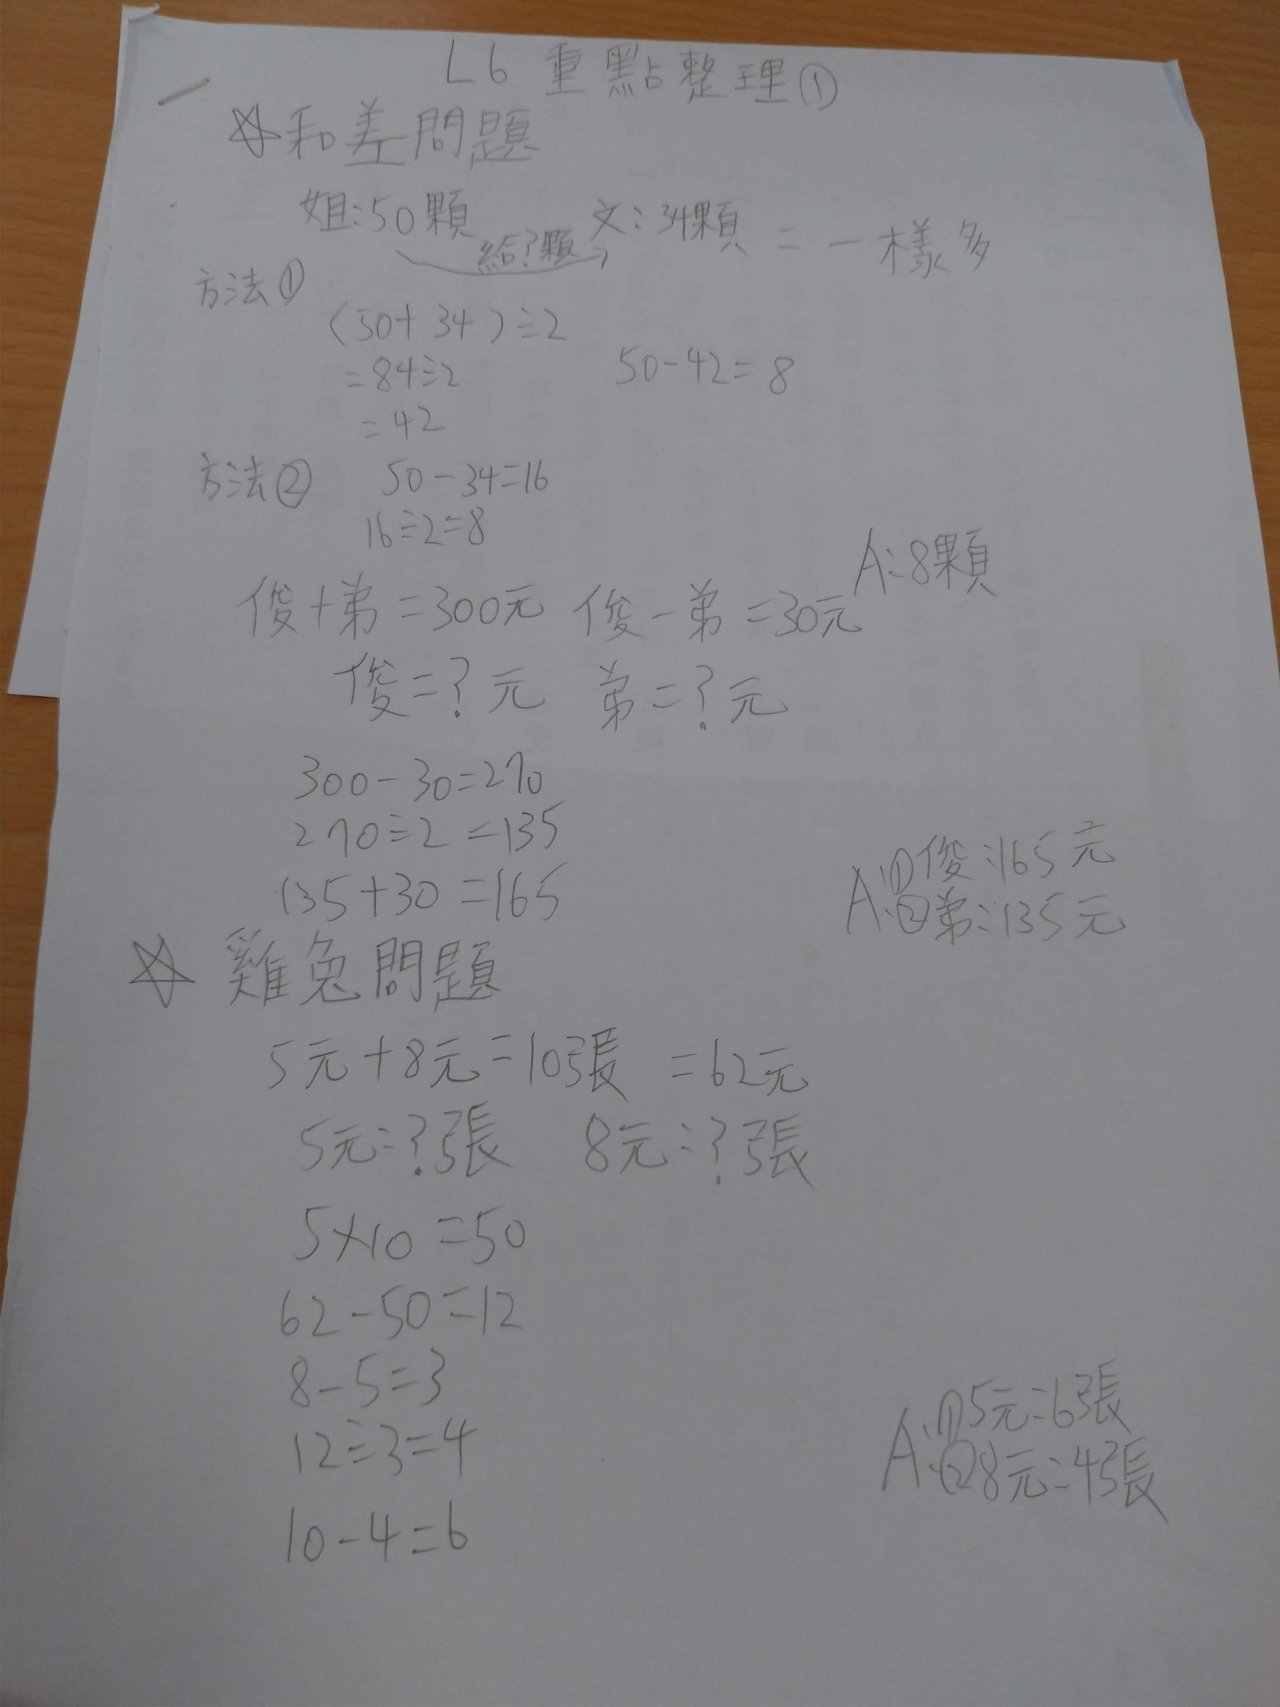 L6 重點整理①
☆和差問題
姐:50顆 給?顆 文:34顆 = 一樣多
方法①
(50+34)÷2
=84÷2 50-42=8
=42
方法② 50-34=16
16÷2=8
A:8顆
俊+弟=300元 俊-弟=30元
俊=?元 弟=?元
300-30=270
270÷2=135
135+30=165
A:①俊:165元
②弟:135元
☆雞兔問題
5元+8元=10張 =62元
5元=?張 8元=?張
5×10=50
62-50=12
8-5=3
12÷3=4
10-4=6
A:①5元=6張
②8元=4張